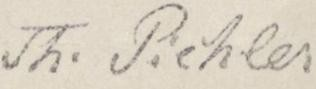 Th. Pichler